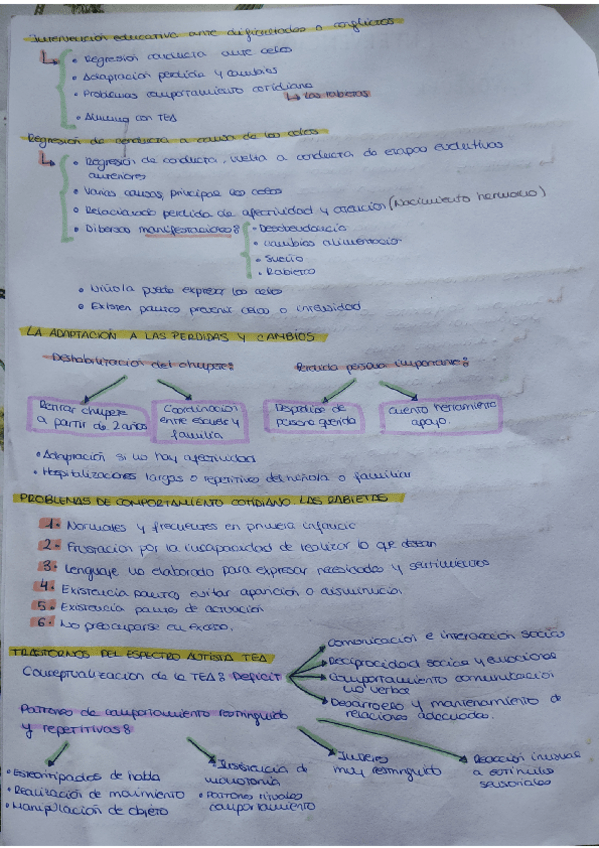 Intervención educativa ante dificultades o conflictos
• Regresión conducta ante celos
• Adaptación pérdida y cambios
• Problemas comportamiento cotidiano
↳ las rabietas
• Alumno con TEA
Regresión de conducta a causa de los celos
• Regresión de conducta, vuelta a conducta de etapas evolutivas
anteriores
• Varias causas, principal los celos
• Relacionado perdida de afectividad y atención (Nacimiento hermano)
• Diversas manifestaciones:
• Desobediencia
• cambios alimentación
• Sueño
• Rabietas
• Niño/a puede expresar los celos
• Existen pautas prevenir celos o intensidad
LA ADAPTACIÓN A LAS PERDIDAS Y CAMBIOS
Deshabilitación del chupete:
Perdida persona importante:
Retirar chupete
a partir de 2 años
Coordinación
entre escuela y
familia
Despedirse de
persona querida
cuento herramienta
apoyo.
• Adaptación si no hay afectividad
• Hospitalizaciones largas o repetitivas del niño/a o familiar
PROBLEMAS DE COMPORTAMIENTO COTIDIANO. LAS RABIETAS
1. Normales y frecuentes en primera infancia
2. Frustración por la incapacidad de realizar lo que desean
3. Lenguaje no elaborado para expresar necesidades y sentimientos
4. Existencia pautas evitar aparición o disminución
5. Existencia pautas de actuación
6. No preocuparse en exceso.
TRASTORNOS DEL ESPECTRO AUTISTA TEA
Conceptualización de la TEA: Deficit
Comunicación e interacción social
Reciprocidad social y emocional
Comportamiento comunicación
no verbal
Desarrollo y mantenimiento de
relaciones adecuadas.
Patrones de comportamiento restringido
y repetitivas:
• Estereotipados de habla
• Realización de movimiento
• Manipulación de objeto
• Insistencia de
monotonía
• Patrones rituales
comportamiento
Interés
muy restringido
Reacción inusual
a estímulos
sensoriales